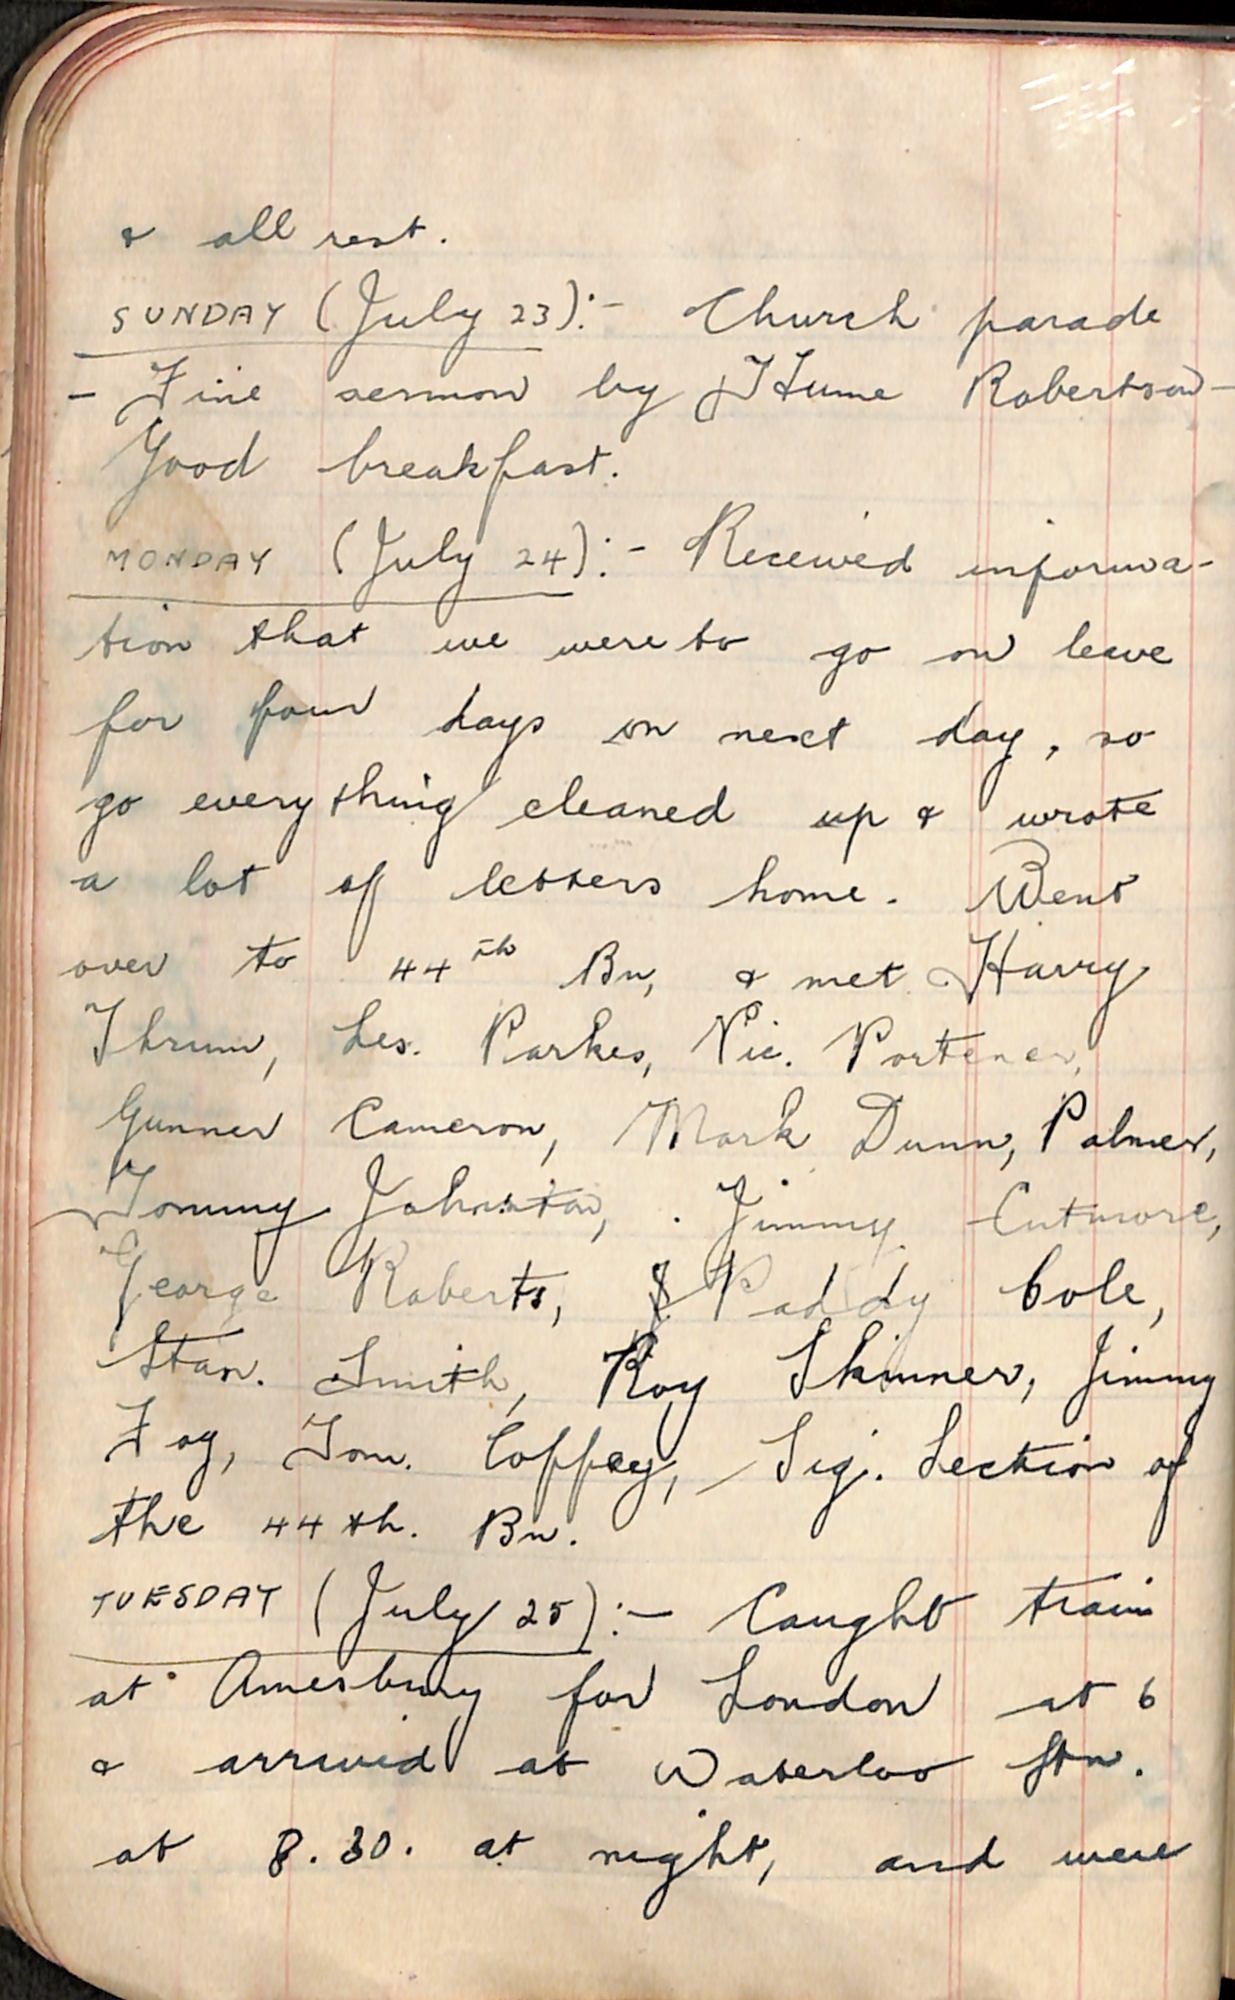 & all rest.
SUNDAY (July 23):- Church parade
- Fine sermon by Hume Robertson -
Good breakfast.
MONDAY (July 24):- Received informa-
tion that we were to go on leave
for four days on next day, so
go everything cleaned up & wrote
a lot of letters home. Went
over to 44th Bn, & met Harry
Thrum, Les. Parkes, Vic. Portener,
Gunner Cameron, Mark Dunn, Palmer,
Tommy Johnston, Jimmy Cutmore,
George Roberts, Paddy Cole,
Stan. Smith, Roy Skinner, Jimmy
Foy, Tom. Coffey, Sig. Section of
the 44th. Bn.
TUESDAY (July 25):- Caught train
at Amesbury for London at 6
& arrived at Waterloo Stn.
at 8.30. at night, and were